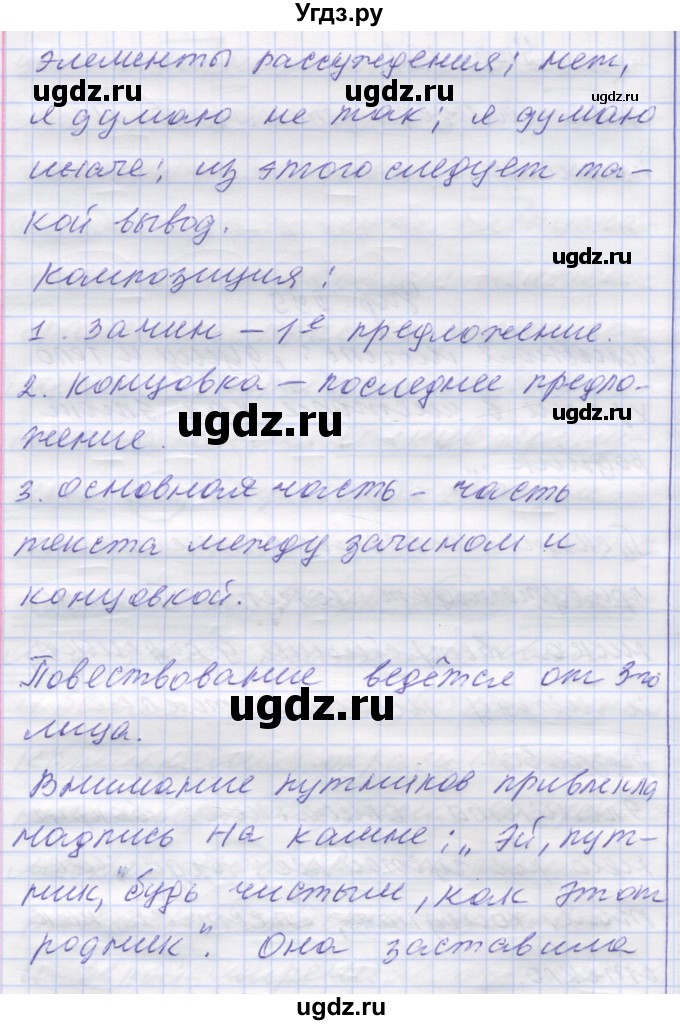 Угдз.ру
элементы рассуждения; нет,
я думаю не так; я думаю
иначе; из этого следует та-
кой вывод.
Композиция:
1. Зачин – 1е предложение.
2. Концовка – последнее предло-
жение.
3. Основная часть – часть
текста между зачином и
концовкой.
Повествование ведётся от 3го
лица.
Внимание путников привлекла
надпись на камне: „Эй, пут-
ник, будь чистым, как этот
родник". Она заставила
ugdz.ru
ugdz.ru
ugdz.ru
ugdz.ru
ugdz.ru
ugdz.ru
ugdz.ru
ugdz.ru
ugdz.ru
ugdz.ru